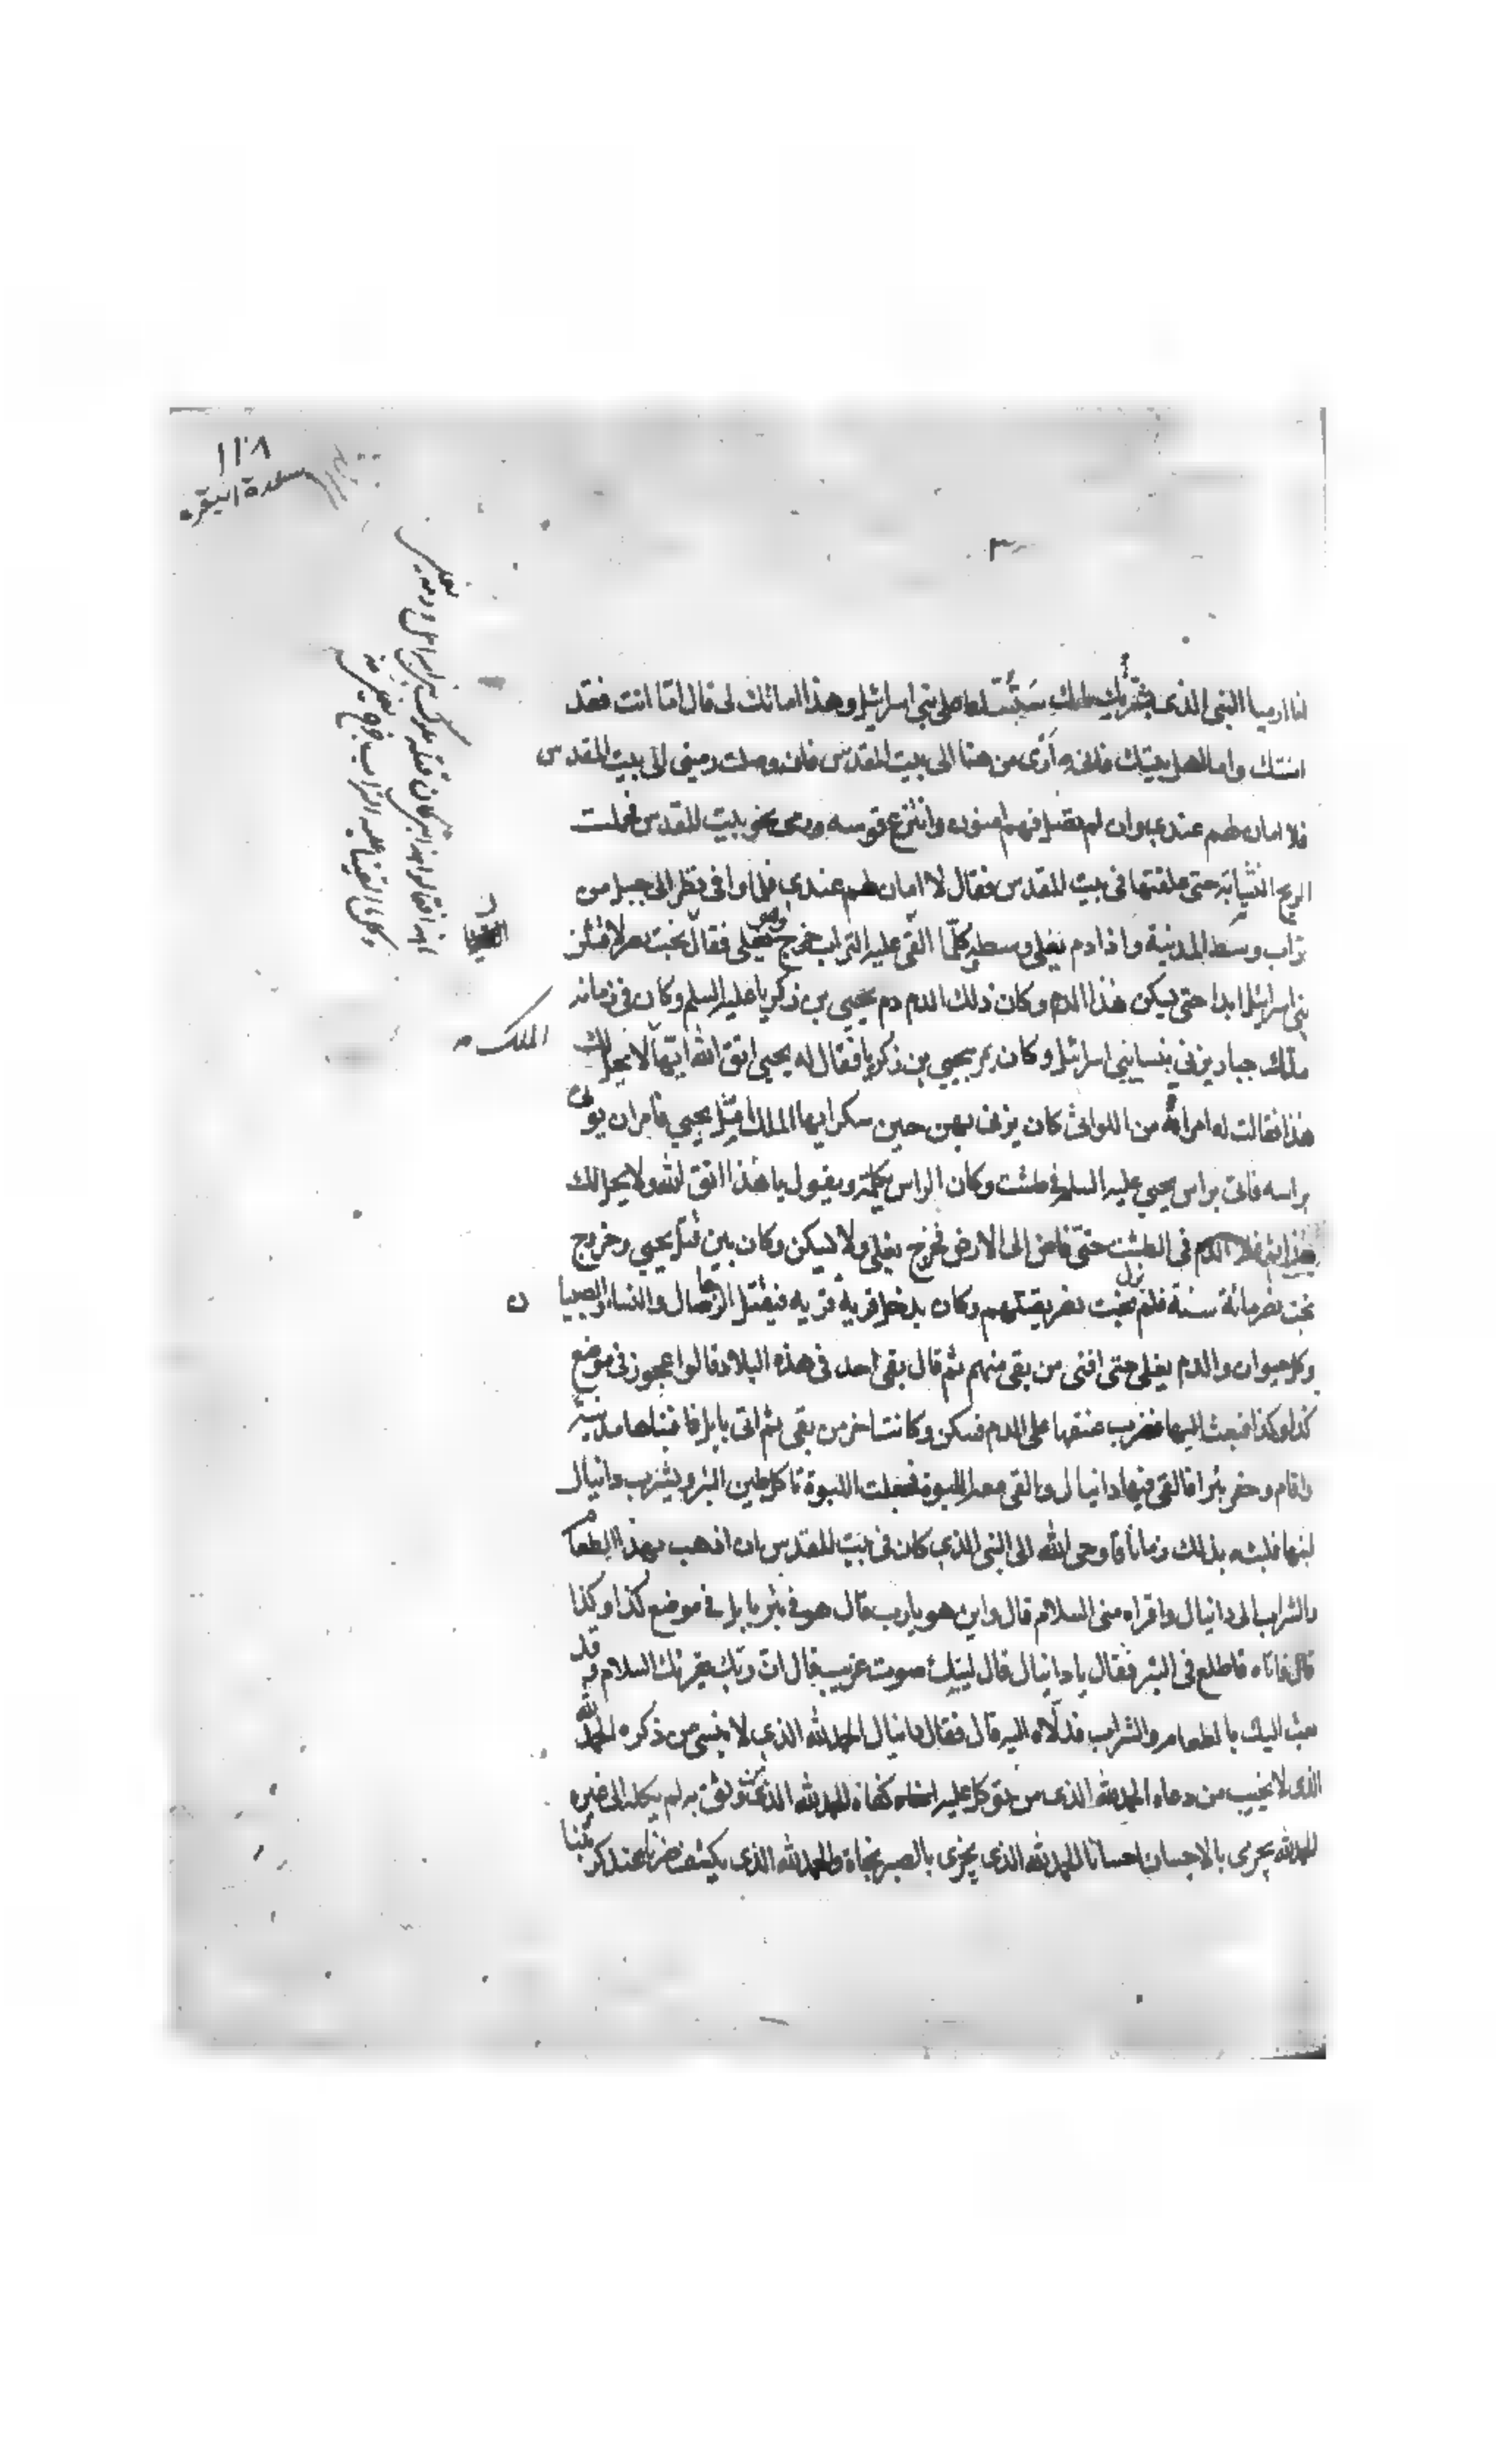 ١١٨
سورة البقرة
انا ارميا النبي الذي بشرتك بانك سيسلطك الله على بني اسرائيل وهذا امانك لي قال اما انت فقد
امنتك واما اهل بيتك فاني ارمي من هنا الى بيت المقدس فان وصلت رميتي الى بيت المقدس
فلا امان لهم عندي وان لم تصل فهم امنون وانتزع قوسه ورمى نحو بيت المقدس فحملت
الريح النشابة حتى علقتها في بيت المقدس فقال لا امان لهم عندي فلما وافى نظر الى جبل من
تراب وسط المدينة واذا دم يغلي وسطه كلما القي عليه التراب خرج وهو يغلي فقال بخت نصر لاقتلن
بني اسرائيل ابدا حتى يسكن هذا الدم وكان ذلك الدم دم يحيى بن زكريا عليه السلم وكان في زمانه
ملك جبار يزني بنساء بني اسرائيل وكان يمر بيحيى بن زكريا فقال له يحيى اتق الله ايها الملك لا يحل لك
هذا فقالت له امراة من اللواتي كان يزني بهن حين سكر ايها الملك اقتل يحيى فامر ان يوتى
براسه فاتي براس يحيى عليه السلم في طشت وكان الراس يكلمه ويقول يا هذا اتق الله ولا يحل لك
هذا ثم غلا الدم في الطشت حتى فاض الى الارض فخرج يغلي ولا يسكن وكان بين قتل يحيى وخروج
بخت نصر مائة سنة فلم يزل بخت نصر يقتلهم وكان يدخل قرية قرية فيقتل الرجال والنساء والصبيان
وكل حيوان والدم يغلي حتى افنى من بقي منهم ثم قال بقي احد في هذه البلاد قالوا عجوز في موضع
كذا وكذا فبعث اليها فضرب عنقها على الدم فسكن وكانت اخر من بقي ثم اتى بابل فابتنى بها مدينة
واقام وحفر بئرا فالقى فيها دانيال والقى معه اللبوة فجعلت اللبوة تاكل طين البئر ويشرب دانيال
لبنها فلبث بذلك زمانا فاوحى الله الى النبي الذي كان في بيت المقدس ان اذهب بهذا الطعام
والشراب الى دانيال واقراه مني السلام قال واين هو يا رب قال هو في بئر بابل في موضع كذا وكذا
قال فاتاه فاطلع في البئر فقال يا دانيال قال لبيك صوت غريب قال ان ربك يقرئك السلام وقد
بعث اليك بالطعام والشراب فدلاه اليه قال فقال دانيال الحمد لله الذي لا ينسى من ذكره الحمد لله
الذي لا يخيب من دعاه الحمد لله الذي من توكل عليه كفاه الحمد لله الذي من وثق به لم يكله الى غيره
الحمد لله يجزي بالاحسان احسانا الحمد لله الذي يجزي بالصبر نجاة والحمد لله الذي يكشف ضرنا عند كربتنا
الملك